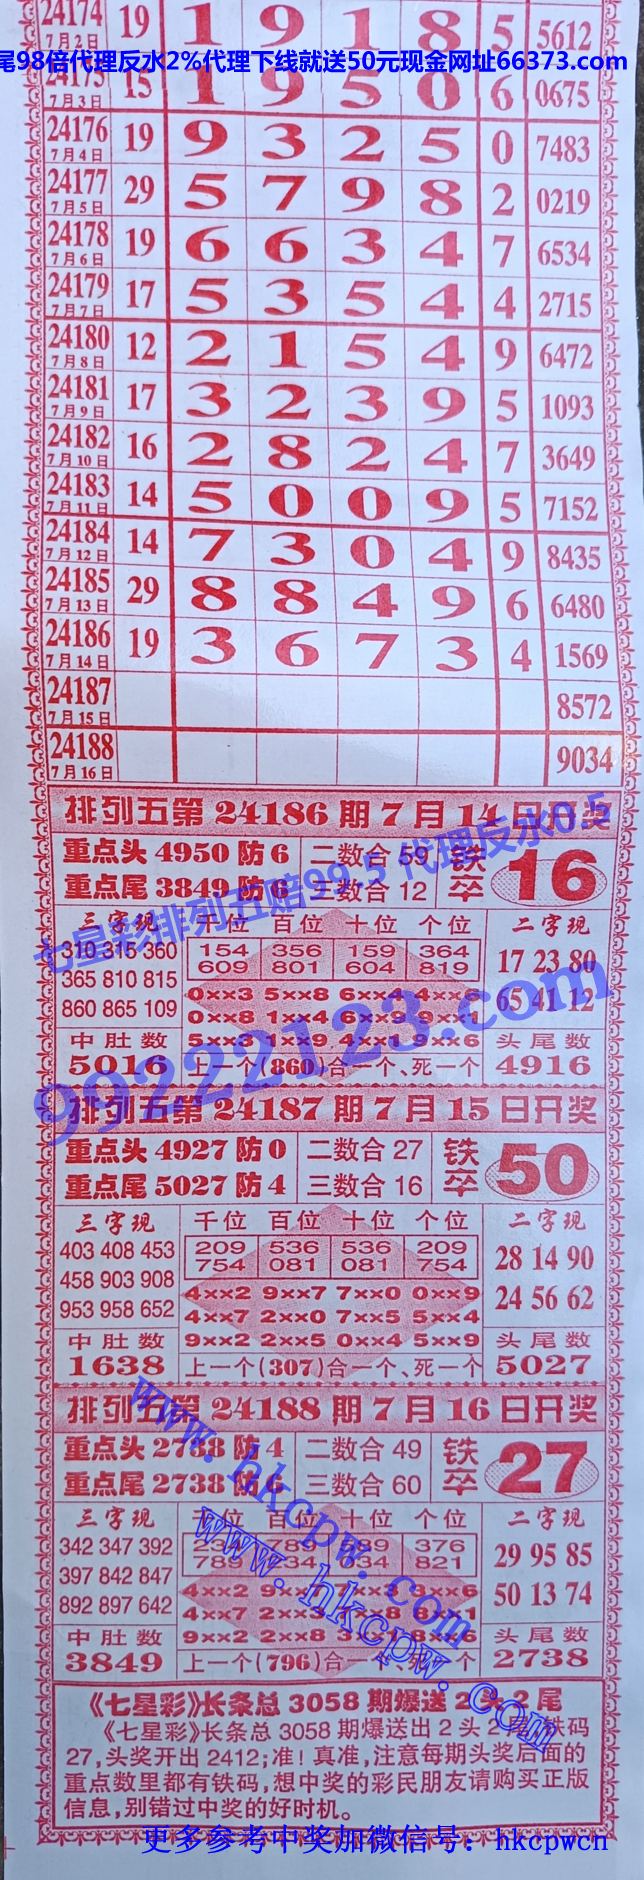 24174 19 1 9 1 8 5 5612
7月2日
尾98倍代理反水2%代理下线就送50元现金网址66373.com
24175 15 1 9 5 0 6 0675
7月3日
24176 19 9 3 2 5 0 7483
7月4日
24177 29 5 7 9 8 2 0219
7月5日
24178 19 6 6 3 4 7 6534
7月6日
24179 17 5 3 5 4 4 2715
7月7日
24180 12 2 1 5 4 9 6472
7月8日
24181 17 3 2 3 9 5 1093
7月9日
24182 16 2 8 2 4 7 3649
7月10日
24183 14 5 0 0 9 5 7152
7月11日
24184 14 7 3 0 4 9 8435
7月12日
24185 29 8 8 4 9 6 6480
7月13日
24186 19 3 6 7 3 4 1569
7月14日
24187 8572
7月15日
24188 9034
7月16日
排列五第24186期7月14日开奖
重点头4950防6 二数合59 铁卒 16
重点尾3849防6 三数合12
七星彩排列五赔99.5 代理反水0.5
三字现 千位 百位 十位 个位 二字现
310 315 360 154 356 159 364 17 23 80
365 810 815 609 801 604 819
860 865 109 0××3 5××8 6××4 4××6 65 41 12
0××8 1××4 6××9 9××1
中肚数 5××3 1××9 4××1 9××6 头尾数
5016 上一个(860)合一个、死一个 4916
99222123.com
排列五第24187期7月15日开奖
重点头4927防0 二数合27 铁卒 50
重点尾5027防4 三数合16
三字现 千位 百位 十位 个位 二字现
403 408 453 209 536 536 209 28 14 90
458 903 908 754 081 081 754
953 958 652 4××2 9××7 7××0 0××9 24 56 62
4××7 2××0 7××5 5××4
中肚数 9××2 2××5 0××4 5××9 头尾数
1638 上一个(307)合一个、死一个 5027
排列五第24188期7月16日开奖
重点头2738防4 二数合49 铁卒 27
重点尾2738防6 三数合60
三字现 千位 百位 十位 个位 二字现
342 347 392 234 789 376 29 95 85
397 842 847 789 234 821
892 897 642 4××2 50 13 74
4××7
中肚数 9××2 2××8 头尾数
3849 上一个(796)合一个 2738
www.hkcpw.com
www.hkcpw.com
《七星彩》长条总3058期爆送2头2尾
《七星彩》长条总3058期爆送出2头2尾,铁码
27,头奖开出2412;准!真准,注意每期头奖后面的
重点数里都有铁码,想中奖的彩民朋友请购买正版
信息,别错过中奖的好时机。
更多参考中奖加微信号：hkcpwcn